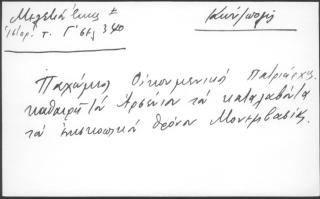 Μελετίου
Ἱστορ. τ. Γ΄ σελ 340
Κων/πολις
Παχώμιος Οἰκουμενικὸς Πατριάρχης
καθαιρεῖ τὸν Ἀρσένιον τὸν καταλαβόντα
τὸν ἐπισκοπικὸν θρόνον Μονεμβασίας.